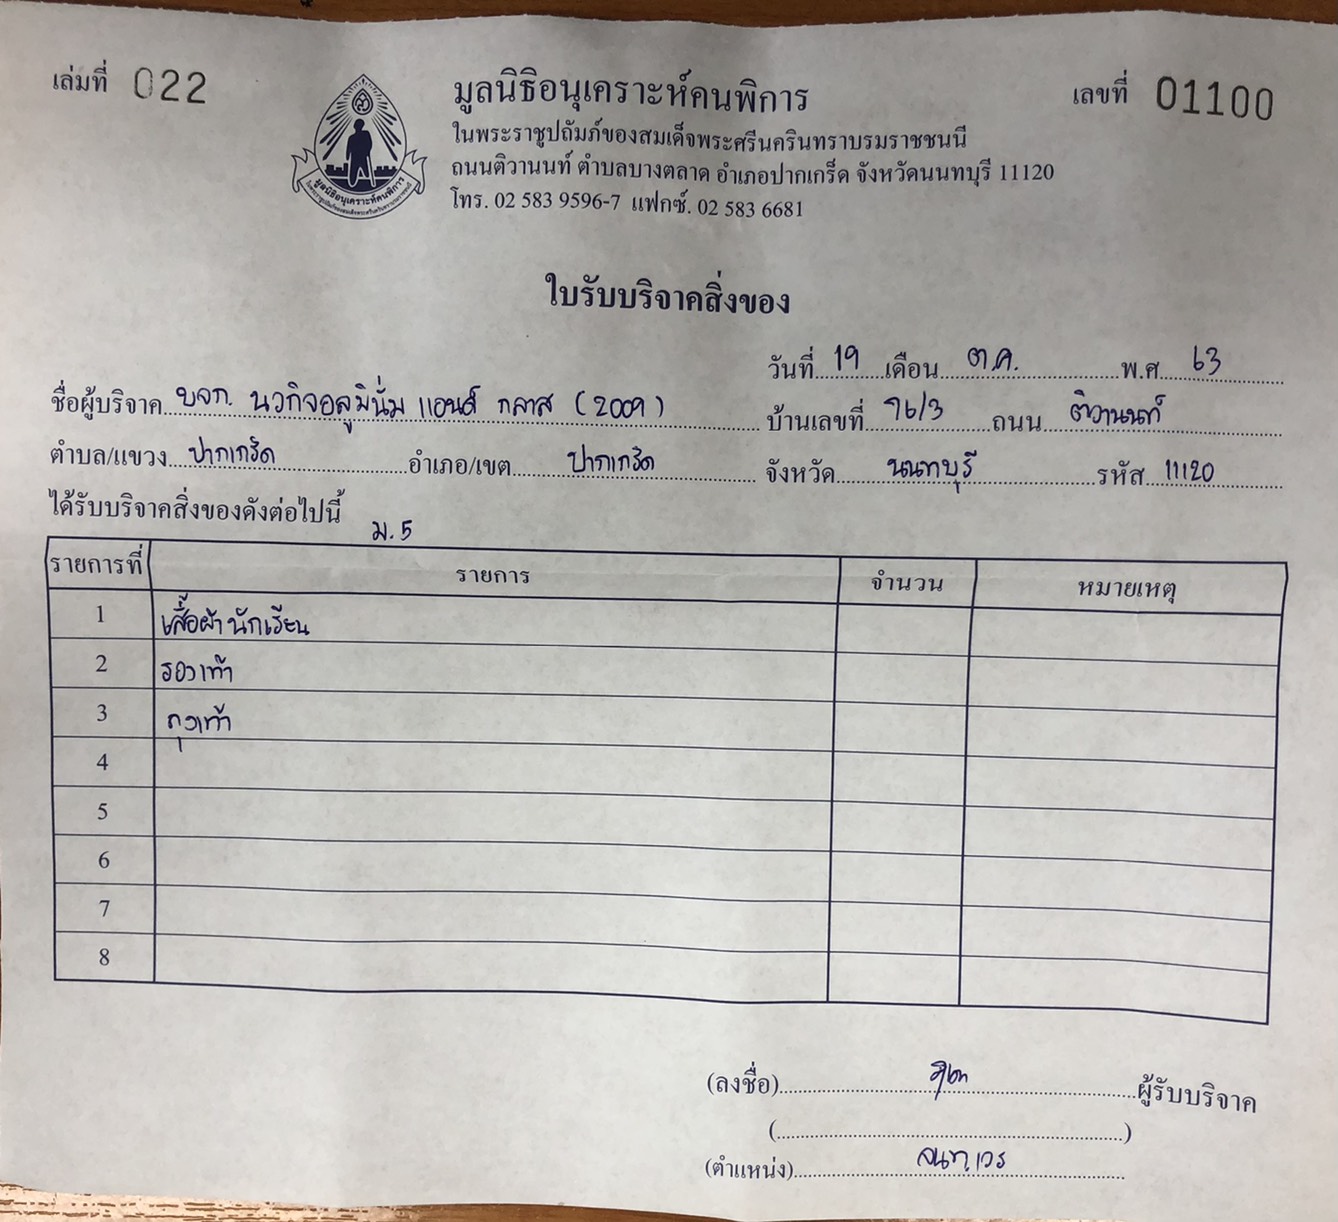 เล่มที่ 022
มูลนิธิอนุเคราะห์คนพิการ
เลขที่ 01100
ในพระราชูปถัมภ์ของสมเด็จพระศรีนครินทราบรมราชชนนี
ถนนติวานนท์ ตำบลบางตลาด อำเภอปากเกร็ด จังหวัดนนทบุรี 11120
โทร. 02 583 9596-7 แฟกซ์. 02 583 6681
มูลนิธิอนุเคราะห์คนพิการ
ใบรับบริจาคสิ่งของ
วันที่ 19 เดือน ต.ค. พ.ศ 63
ชื่อผู้บริจาค บจก. นวกิจอลูมินั่ม แอนด์ กลาส (2009) บ้านเลขที่ 76/3 ถนน ติวานนท์
ตำบล/แขวง ปากเกร็ด อำเภอ/เขต ปากเกร็ด จังหวัด นนทบุรี รหัส 11120
ได้รับบริจาคสิ่งของดังต่อไปนี้ ม.5
รายการที่ รายการ จำนวน หมายเหตุ
1 เสื้อผ้านักเรียน
2 รองเท้า
3 ถุงเท้า
4
5
6
7
8
(ลงชื่อ) ผู้รับบริจาค
( )
(ตำแหน่ง) จนท.เวร